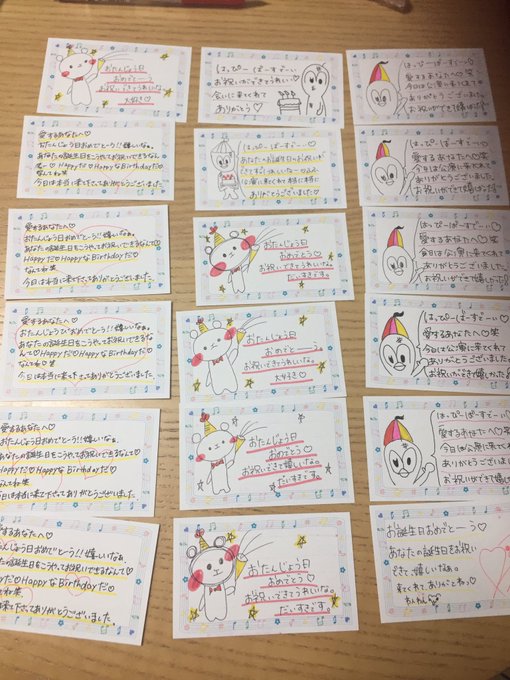 おたんじょう日
おめでとーう
お祝いできてうれしいな
大好き♡
はっぴーばーすでーい
お祝いができてうれしい♡
会いに来てくれて
ありがとう♡
はっぴーばーすでーい
愛するあなたへ♡笑
今日は公演に来てくれて
ありがとうございました
お祝いができて嬉しかった!
愛するあなたへ♡
おたんじょう日おめでとう!!嬉しいなぁ
あなたの誕生日をこうやってお祝いできるなんて
Happyだ♡HappyなBirthdayだ♡
なんてね笑
今日は本当に来て下さってありがとうございました
はっぴーばーすでーい
あなたのお誕生日をお祝い
ありがとうございました♡
おたんじょう日
おめでとう♡
お祝いできてうれしいな。
だいすきです。
はっぴーばーすでーい
愛するあなたへ♡笑
今日は公演に来てくれて
ありがとうございました
お祝いができて嬉し
はっぴーばーすでーい
愛するあなたへ♡笑
今日は公演に来てくれて
ありがとうございました。
お祝いができて嬉し
愛するあなたへ♡
おたんじょう日おめでとう!!嬉しいなぁ。
あなたの誕生日をこうやってお祝いできるなんて
Happyだ♡HappyなBirthdayだ♡
なんてね笑
今日は本当に来て下さってありがとうございました
愛するあなたへ♡
おたんじょうびおめでとう!!嬉しいなぁ。
あなたの誕生日をこうやってお祝いできるなん
て♡Happyだ♡HappyなBirthdayだ♡
なんてね笑
今日は本当に来て下さってありがとうございました。
おたんじょう日
おめでとーう
お祝いできてうれしいな。
大好き♡
はっぴーばーすでーい
愛するあなたへ♡笑
今日は公演に来てくれて
ありがとうございました
お祝いができて嬉しかった!
愛するあなたへ♡
おたんじょう日おめでとう!!嬉しいなぁ。
あなたの誕生日をこうやってお祝いできるなんて♡
Happyだ♡HappyなBirthdayだ♡
なんてね笑
今日は本当に来て下さってありがとうございました。
おたんじょう日
おめでとう♡
お祝いできて嬉しいな。
だいすきです。
はっぴーばーすでーい
愛するあなたへ♡笑
今日は公演に来てくれて
ありがとうございました
お祝いができて嬉し
愛するあなたへ♡
おたんじょう日おめでとう!!嬉しいなぁ
あなたの誕生日をこうやってお祝いできるなんて♡
Happyだ♡HappyなBirthdayだ♡
なんてね笑
来て下さってありがとうございました。
おたんじょう日
おめでとう♡
お祝いできてうれしいな。
だいすきです。
お誕生日おめでとーう♡
あなたの誕生日をお祝い
できて、嬉しいなぁ。
来てくれて、ありがとねっ♡